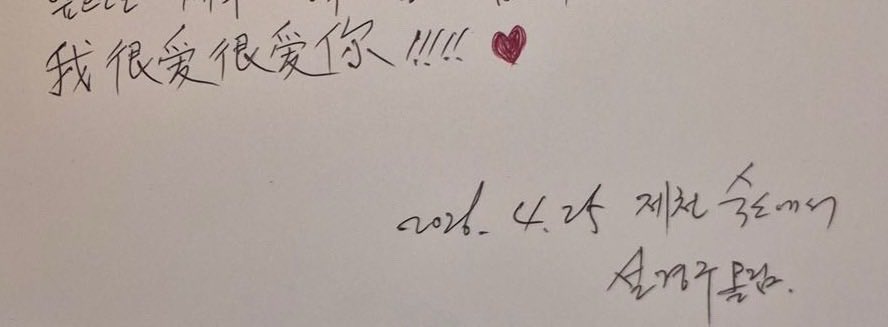 我很爱很爱你!!!!! ♥
2026. 4. 25 제천 숙소에서
설경구 올림.